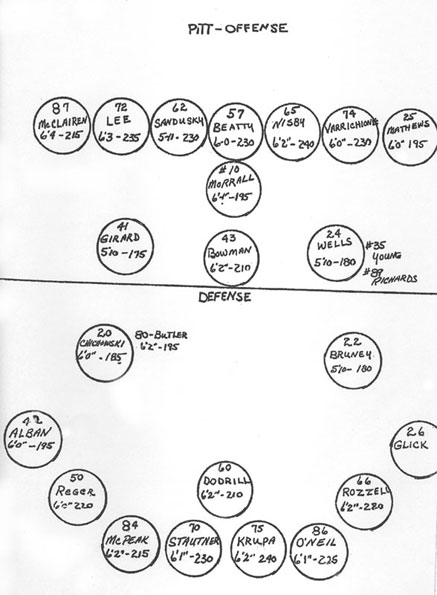 PITT-OFFENSE
87
McCLAIREN
6'4-215
72
LEE
6'3-235
62
SANDUSKY
5-11-230
57
BEATTY
6-0-230
65
NISBY
6'2"-240
74
VARRICHIONE
6'0"-230
25
MATHEWS
6'0" 195
#10
MORRALL
6'1"-195
41
GIRARD
5'10-175
43
BOWMAN
6'2"-210
24
WELLS
5'10-180
#35
YOUNG
#89
RICHARDS
DEFENSE
20
CICHOWSKI
6'0"-185
80-BUTLER
6'2"-195
22
BRUNEY
5'10-180
42
ALBAN
6'0"-195
26
GLICK
50
REGER
6'0" 220
60
DODRILL
6'2"-210
66
ROZZELL
6'2"-220
84
McPEAK
6'2"-215
70
STAUTNER
6'1"-230
75
KRUPA
6'2" 240
86
O'NEIL
6'1"-225